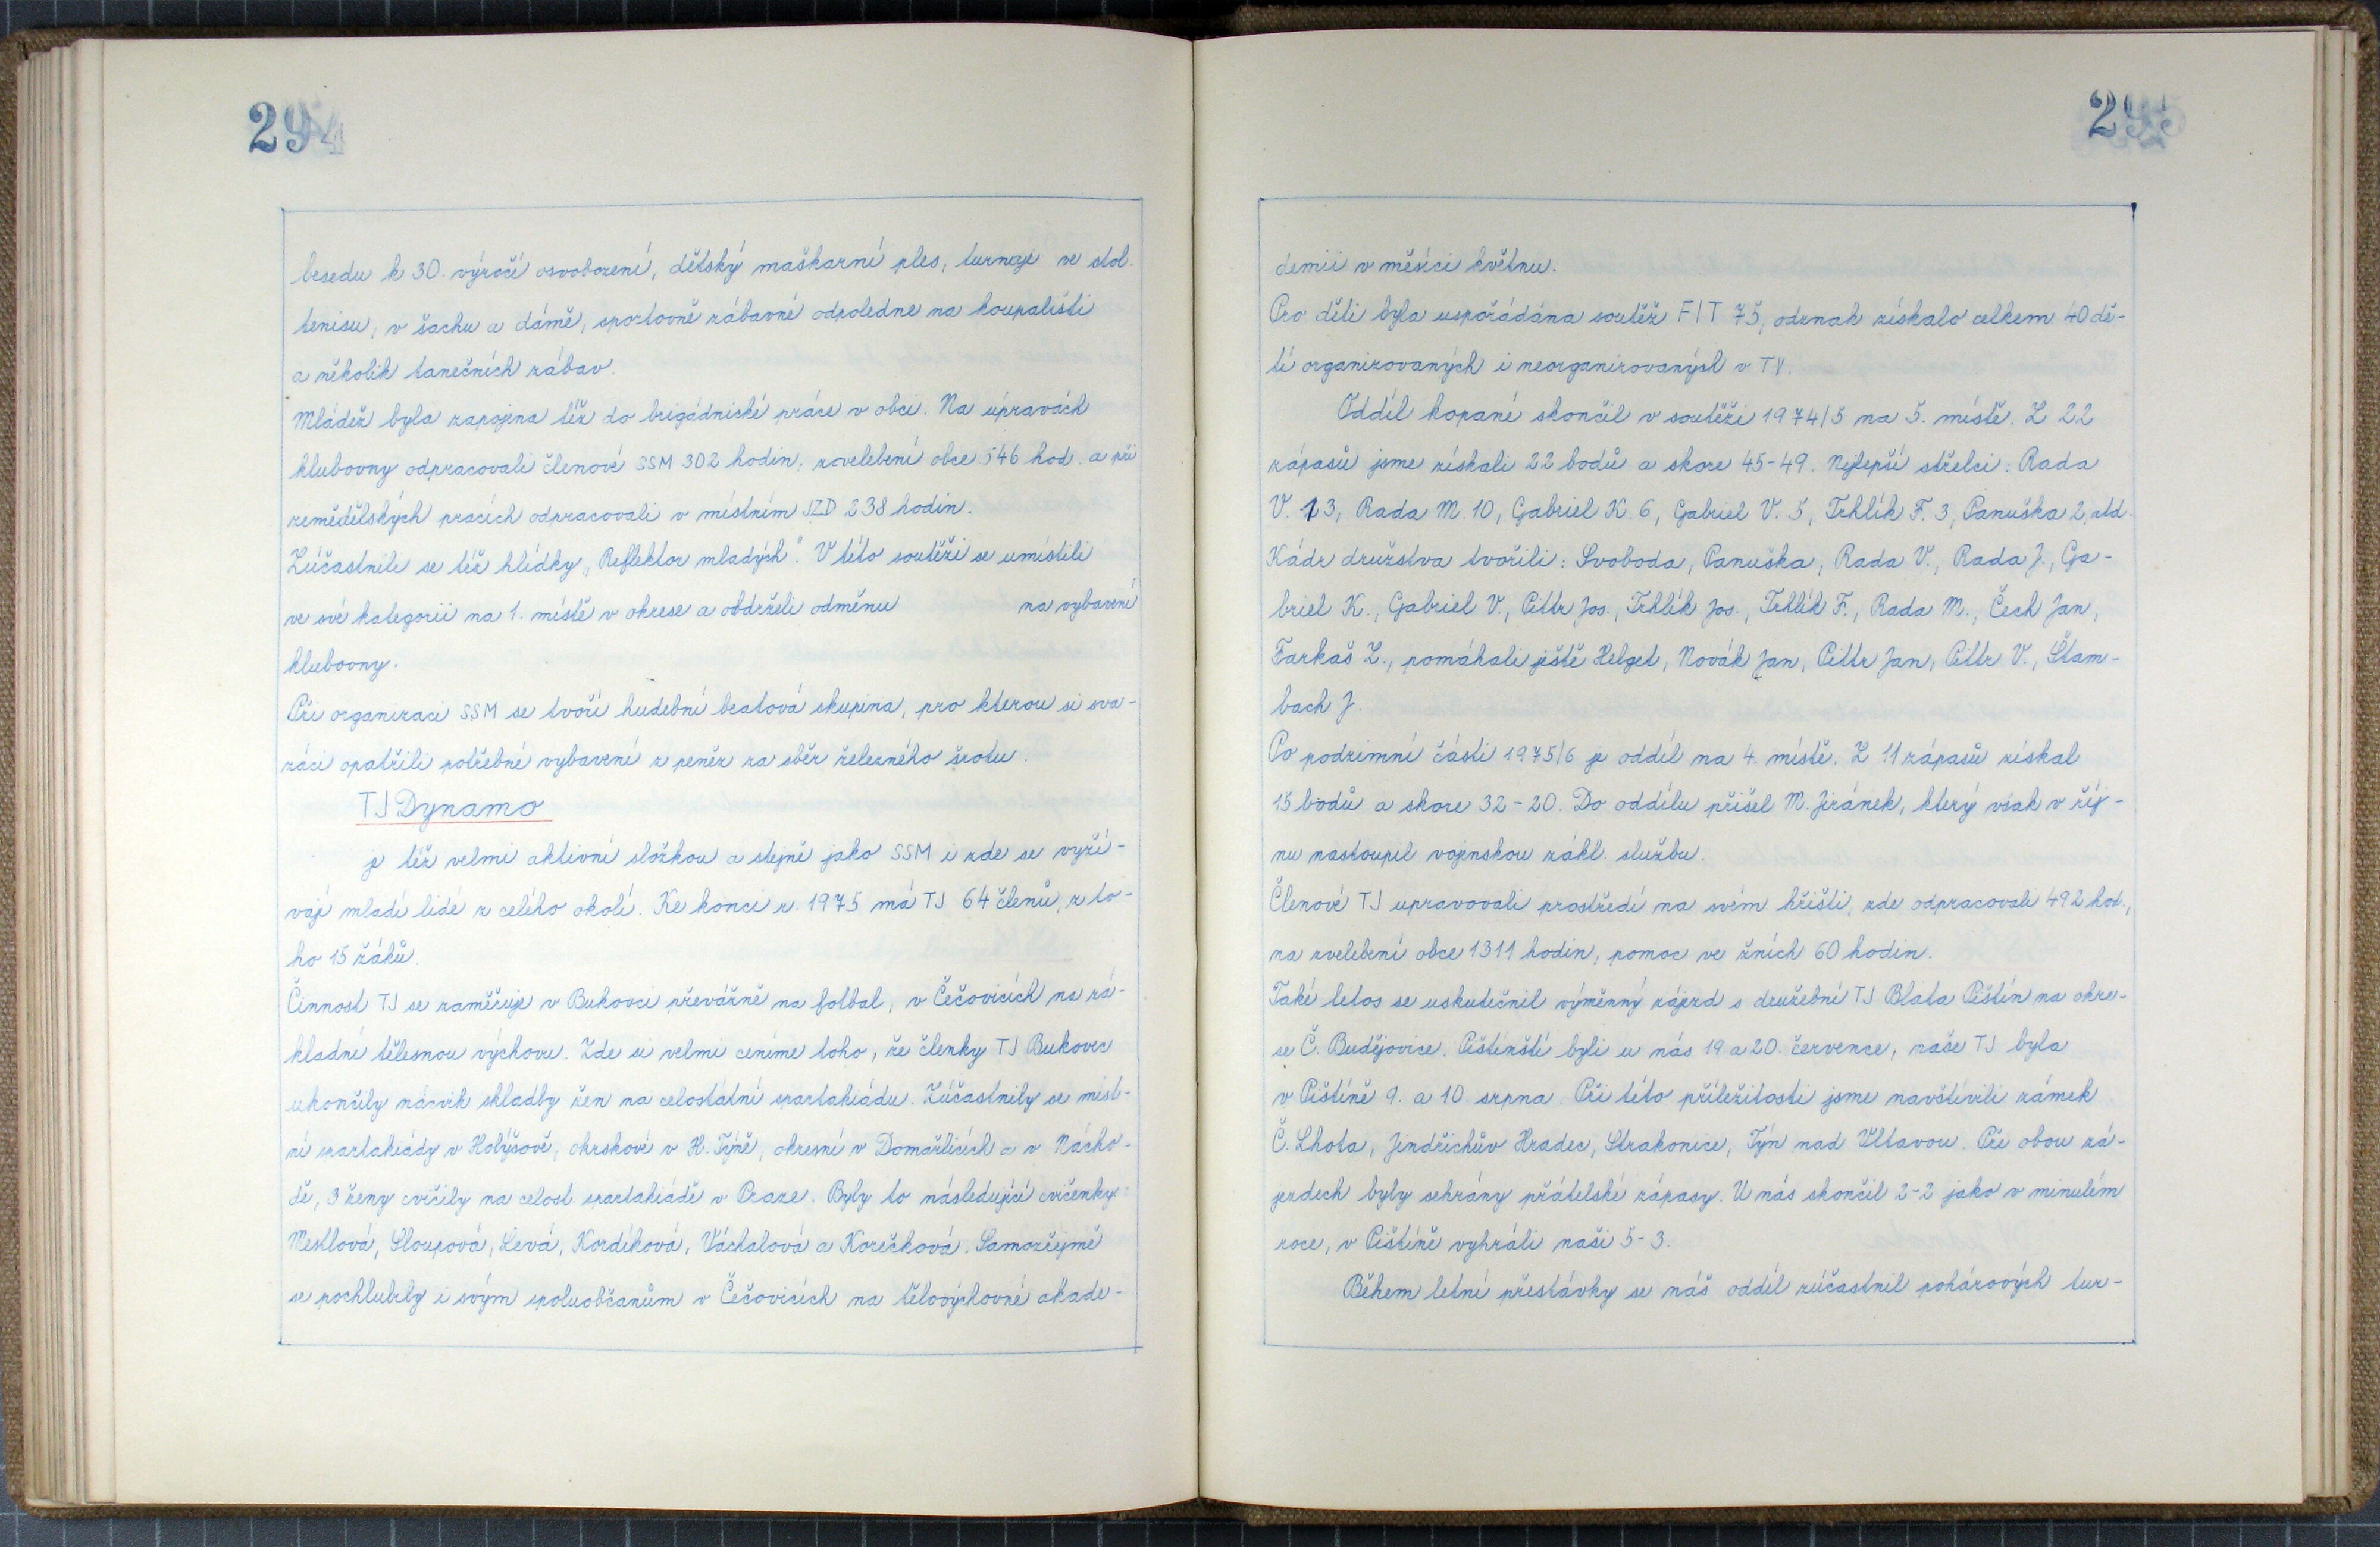 294
besedu k 30. výročí osvobození, dětský maškarní ples, turnaje ve stol.
tenisu, v šachu a dámě, sportovně zábavné odpoledne na koupališti
a několik tanečních zábav.
Mládež byla zapojena též do brigádnické práce v obci. Na úpravách
klubovny odpracovali členové SSM 302 hodin, zvelebení obce 546 hod. a při
zemědělských pracích odpracovali v místním JZD 238 hodin.
Zúčastnili se též hlídky „Reflektor mladých". V této soutěži se umístili
ve své kategorii na 1. místě v okrese a obdrželi odměnu na vybavení
klubovny.
Při organizaci SSM se tvoří hudební beatová skupina, pro kterou si sva-
záci opatřili potřebné vybavení z peněz za sběr železného šrotu.
TJ Dynamo
je též velmi aktivní složkou a stejně jako SSM i zde se vyží-
vají mladí lidé z celého okolí. Ke konci r. 1975 má TJ 64 členů, z to-
ho 15 žáků.
Činnost TJ se zaměřuje v Bukovci převážně na fotbal, v Čečovicích na zá-
kladní tělesnou výchovu. Zde si velmi ceníme toho, že členky TJ Bukovec
ukončily nácvik skladby žen na celostátní spartakiádu. Zúčastnily se míst-
ní spartakiády v Holýšově, okrskové v H. Týně, okresní v Domažlicích a v Nácho-
dě, 3 ženy cvičily na celost. spartakiádě v Praze. Byly to následující cvičenky:
Mestlová, Sloupová, Levá, Kordíková, Váchalová a Korečková. Samozřejmě
se pochlubily i svým spoluobčanům v Čečovicích na tělovýchovné akade-
295
demii v měsíci květnu.
Pro děti byla uspořádána soutěž FIT 75, odznak získalo celkem 40 dě-
tí organizovaných i neorganizovanýsh v TV.
Oddíl kopané skončil v soutěži 1974/5 na 5. místě. Z 22
zápasů jsme získali 22 bodů a skore 45-49. Nejlepší střelci: Rada
V. 13, Rada M. 10, Gabriel K. 6, Gabriel V. 5, Trhlík F. 3, Panuška 2, atd.
Kádr družstva tvořili: Svoboda, Panuška, Rada V., Rada J., Ga-
briel K., Gabriel V., Pittr Jos., Trhlík Jos., Trhlík F., Rada M., Čech Jan,
Farkaš Z., pomáhali ještě Helget, Novák Jan, Pittr Jan, Pittr V., Štam-
bach J.
Po podzimní části 1975/6 je oddíl na 4. místě. Z 11 zápasů získal
15 bodů a skore 32-20. Do oddílu přišel M. Jiránek, který však v říj-
nu nastoupil vojenskou zákl. službu.
Členové TJ upravovali prostředí na svém hřišti, zde odpracovali 492 hod.,
na zvelebení obce 1311 hodin, pomoc ve žních 60 hodin.
Také letos se uskutečnil výměnný zájezd s družební TJ Blata Pištín na okre-
se Č. Budějovice. Pištínští byli u nás 19. a 20. července, naše TJ byla
v Pištíně 9. a 10. srpna. Při této příležitosti jsme navštívili zámek
Č. Lhota, Jindřichův Hradec, Strakonice, Týn nad Vltavou. Při obou zá-
jezdech byly sehrány přátelské zápasy. U nás skončil 2-2 jako v minulém
roce, v Pištíně vyhráli naši 5-3.
Během letní přestávky se náš oddíl zúčastnil pohárových tur-